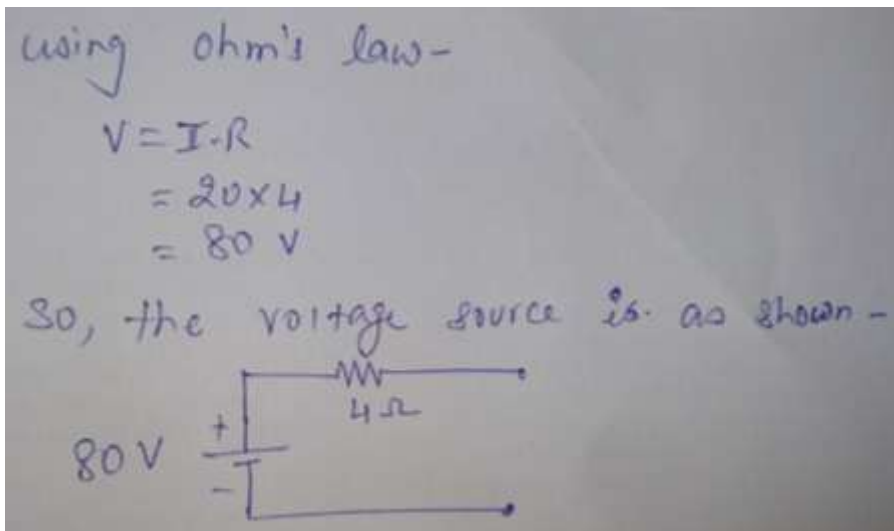 using ohm's law-
V = I.R
= 20×4
= 80 V
So, the voltage source is. as shown-
4Ω
+
80V
-